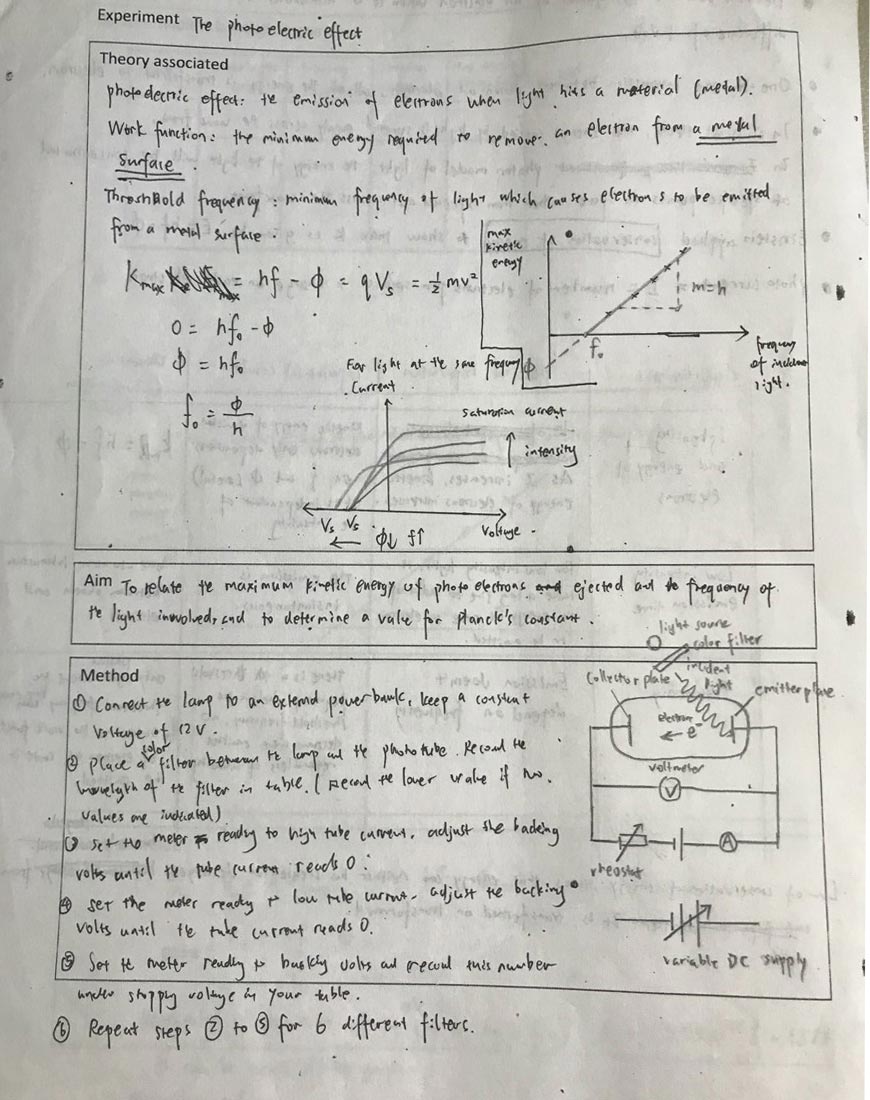 Experiment The photo electric effect
Theory associated
photoelectric effect: the emission of electrons when light hits a material (metal).
Work function: the minimum energy required to remove an electron from a metal
surface.
Threshold frequency: minimum frequency of light which causes electrons to be emitted
from a metal surface.
max
kinetic
energy
m=h
f₀
ϕ
frequency
of incident
light.
Kmax = hf - ϕ = qVs = ½mv²
0 = hf₀ - ϕ
ϕ = hf₀
f₀ = ϕ/h
For light at the same frequency
Current
saturation current
intensity
Vs Vs
Voltage
← ϕ↓ f↑
Aim To relate the maximum kinetic energy of photo electrons ejected and the frequency of
the light involved, and to determine a value for planck's constant.
light source
color filter
incident
light
collector plate
emitter plate
electron
← e⁻
voltmeter
V
A
rheostat
variable DC supply
Method
① Connect the lamp to an external powerbank, keep a constant
voltage of 12 V.
② Place a color filter between the lamp and the photo tube. Record the
wavelength of the filter in table. (Record the lower value if two
values are indicated)
③ set the meter ready to high tube current, adjust the backing
volts until the tube current reads 0.
④ set the meter ready to low tube current, adjust the backing
volts until the tube current reads 0.
⑤ Set the meter ready to backing volts and record this number
under stopping voltage in your table.
⑥ Repeat steps ② to ⑤ for 6 different filters.